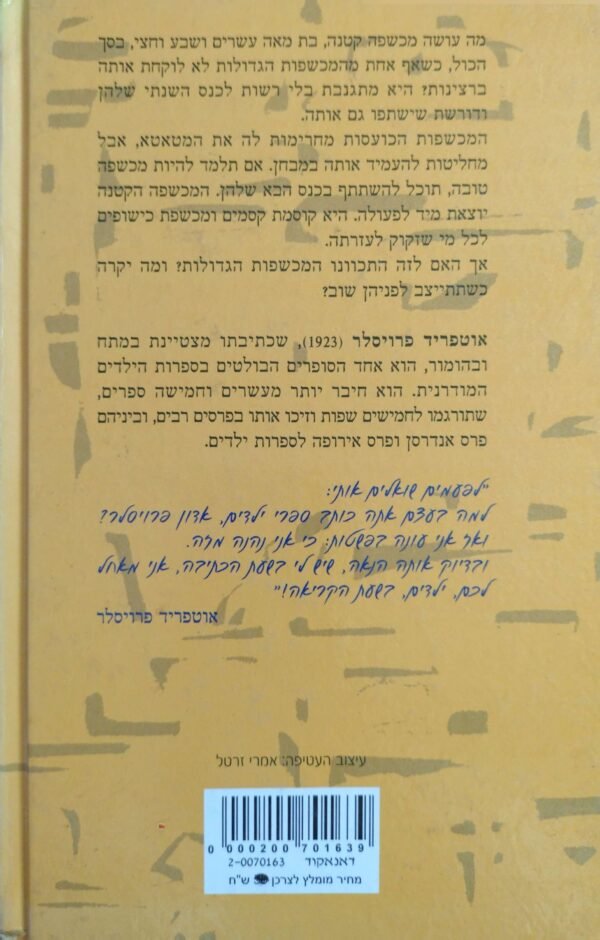 מה עושה מכשפה קטנה, בת מאה עשרים ושבע וחצי, בסך
הכול, כשאף אחת מהמכשפות הגדולות לא לוקחת אותה
ברצינות? היא מתגנבת בלי רשות לכנס השנתי שלהן
ודורשת שישתפו גם אותה.
המכשפות הכועסות מחרימות לה את המטאטא, אבל
מחליטות להעמיד אותה במבחן. אם תלמד להיות מכשפה
טובה, תוכל להשתתף בכנס הבא שלהן. המכשפה הקטנה
יוצאת מיד לפעולה. היא קוסמת קסמים ומכשפת כישופים
לכל מי שזקוק לעזרתה.
אך האם לזה התכוונו המכשפות הגדולות? ומה יקרה
כשתתייצב לפניהן שוב?
אוטפריד פרויסלר (1923), שכתיבתו מצטיינת במתח
ובהומור, הוא אחד הסופרים הבולטים בספרות הילדים
המודרנית. הוא חיבר יותר מעשרים וחמישה ספרים,
שתורגמו לחמישים שפות וזיכו אותו בפרסים רבים, וביניהם
פרס אנדרסן ופרס אירופה לספרות ילדים.
"לפעמים שואלים אותי:
למה בעצם אתה כותב ספרי ילדים, אדון פרויסלר?
ואז אני עונה בפשטות: כי אני נהנה מזה.
ובדיוק אותה הנאה, שיש לי בשעת הכתיבה, אני מאחל
לכם, ילדים, בשעת הקריאה!"
אוטפריד פרויסלר
עיצוב העטיפה: אמרי זרטל
0 000200 701639
דאנאקוד 2-0070163
מחיר מומלץ לצרכן ש"ח